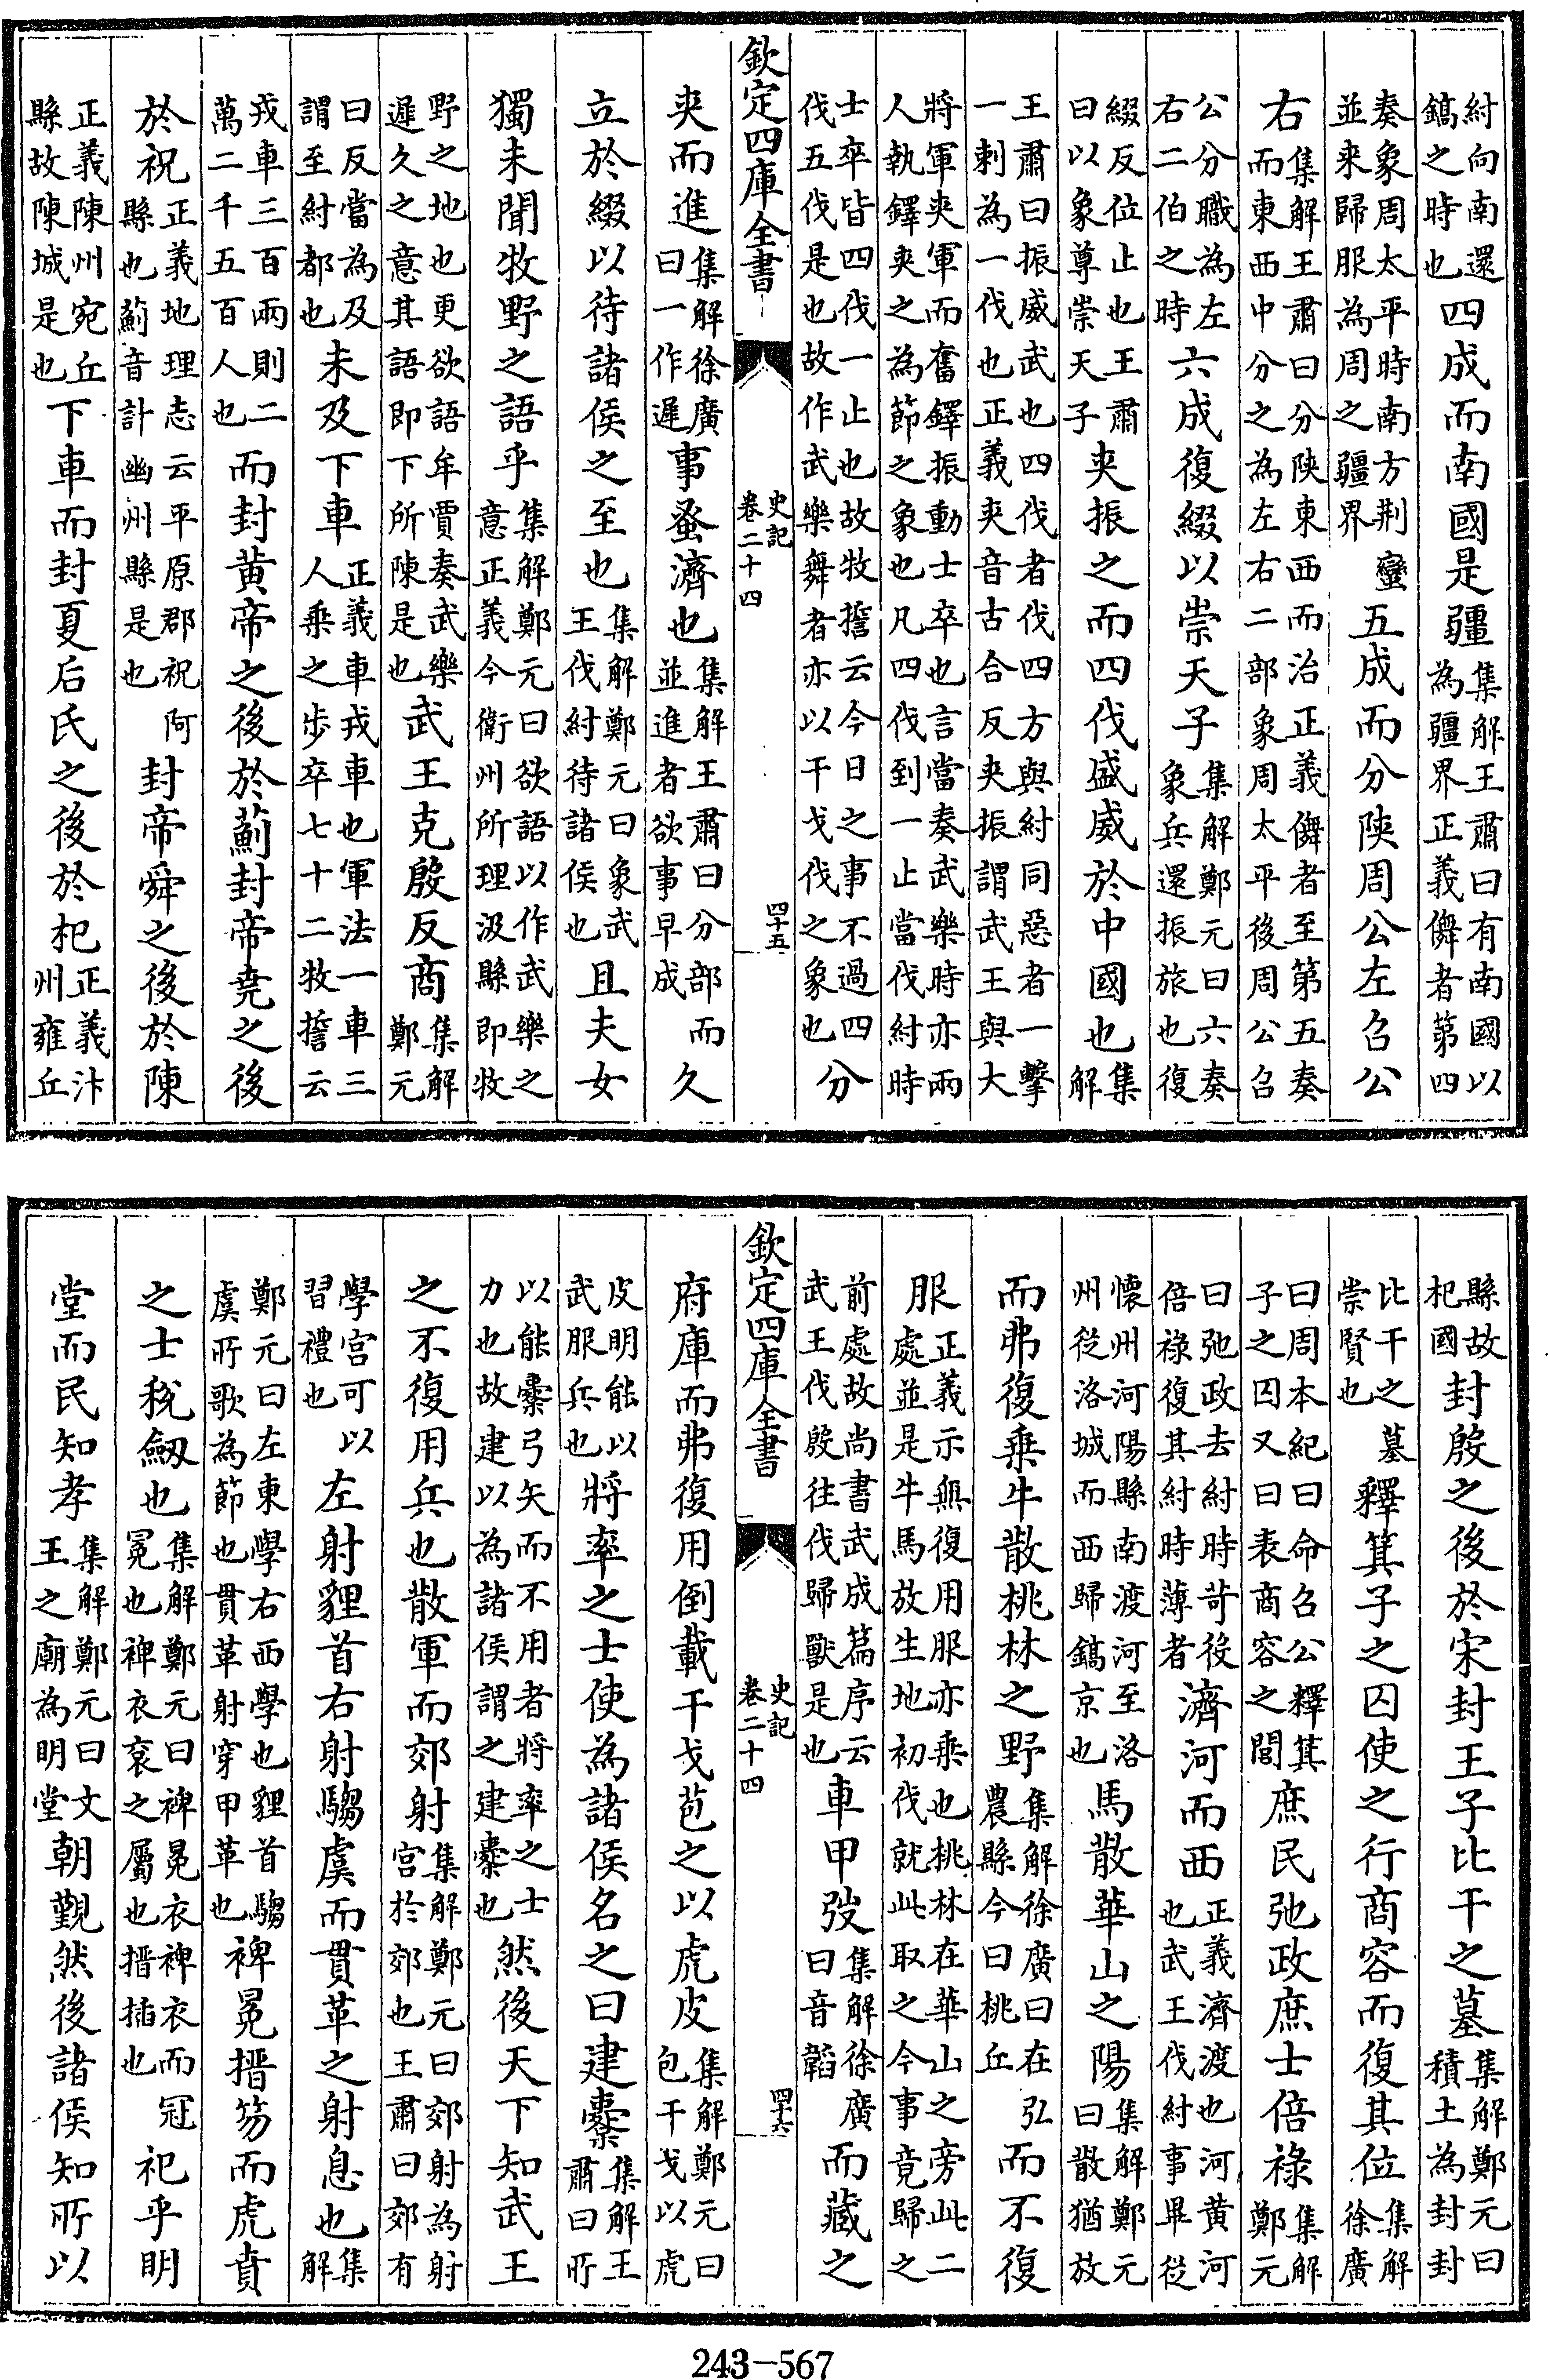 紂向南還鎬之時也四成而南國是疆集解王肅曰有南國以為疆界正義儛者第四
奏象周太平時南方荆蠻並来歸服為周之疆界五成而分陝周公左召公
右集解王肅曰分陝東西而治正義儛者至第五奏而東西中分之為左右二部象周太平後周公召
公分職為左右二伯之時六成復綴以崇天子集解鄭元曰六奏象兵還振旅也復
綴反位止也王肅曰以象尊崇天子夾振之而四伐盛威於中國也集解
王肅曰振威武也四伐者伐四方與紂同惡者一擊一刺為一伐也正義夾音古合反夾振謂武王與大
將軍夾軍而奮鐸振動士卒也言當奏武樂時亦兩人執鐸夾之為節之象也凡四伐到一止當伐紂時
士卒皆四伐一止也故牧誓云今日之事不過四伐五伐是也故作武樂舞者亦以干戈伐之象也分
欽定四庫全書
史記
卷二十四
四十五
夾而進集解徐廣曰一作遲事蚤濟也集解王肅曰分部而並進者欲事早成久
立於綴以待諸侯之至也集解鄭元曰象武王伐紂待諸侯也且夫女
獨未聞牧野之語乎集解鄭元曰欲語以作武樂之意正義今衛州所理汲縣即牧
野之地也更欲語牟賈奏武樂遲久之意其語即下所陳是也武王克殷反商集解鄭元
曰反當為及謂至紂都也未及下車正義車戎車也軍法一車三人乘之步卒七十二牧誓云
戎車三百兩則二萬二千五百人也而封黄帝之後於薊封帝堯之後
於祝正義地理志云平原郡祝阿縣也薊音計幽州縣是也封帝舜之後於陳
正義陳州宛丘縣故陳城是也下車而封夏后氏之後於杞正義汴州雍丘
縣故杞國封殷之後於宋封王子比干之墓集解鄭元曰積土為封封
比干之墓崇賢也釋箕子之囚使之行商容而復其位集解徐廣
曰周本紀曰命召公釋箕子之囚又曰表商容之閭庶民弛政庶士倍祿集解鄭元
曰弛政去紂時苛役倍祿復其紂時薄者濟河而西正義濟渡也河黄河也武王伐紂事畢從
懷州河陽縣南渡河至洛州從洛城而西歸鎬京也馬散華山之陽集解鄭元曰散猶放
而弗復乘牛散桃林之野集解徐廣曰在弘農縣今曰桃丘而不復
服正義示無復用服亦乘也桃林在華山之旁此二處並是牛馬放生地初伐就此取之今事竟歸之
前處故尚書武成篇序云武王伐殷往伐歸獸是也車甲弢集解徐廣曰音韜而藏之
欽定四庫全書
史記
卷二十四
四十六
府庫而弗復用倒載干戈苞之以虎皮集解鄭元曰包干戈以虎
皮明能以武服兵也將率之士使為諸侯名之曰建櫜集解王肅曰所
以能櫜弓矢而不用者將率之士力也故建以為諸侯謂之建櫜也然後天下知武王
之不復用兵也散軍而郊射集解鄭元曰郊射為射宮於郊也王肅曰郊有
學宮可以習禮也左射貍首右射騶虞而貫革之射息也集解
鄭元曰左東學右西學也貍首騶虞所歌為節也貫革射穿甲革也裨冕搢笏而虎賁
之士稅劔也集解鄭元曰裨冕衣裨衣而冠冕也裨衣衮之屬也搢插也祀乎明
堂而民知孝集解鄭元曰文王之廟為明堂朝覲然後諸侯知所以
243-567